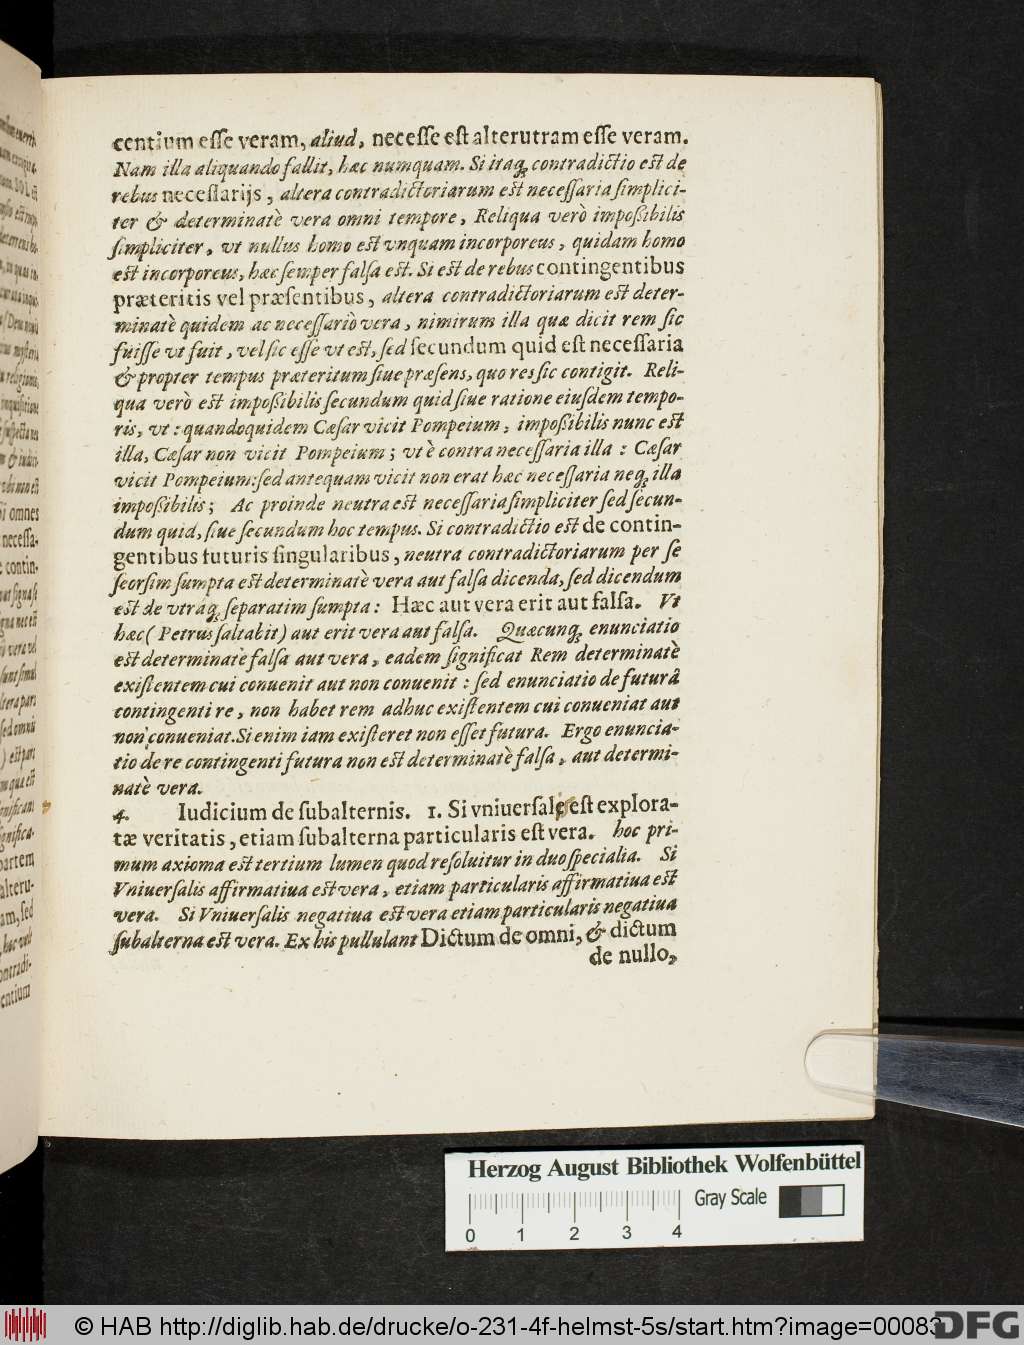 centium eſſe veram, aliud, neceſſe eſt alterutram eſſe veram.
Nam illa aliquando fallit, hæc numquam. Si itaq; contradictio eſt de
rebus neceſſarijs, altera contradictoriarum eſt neceſſaria ſimplici-
ter & determinatè vera omni tempore, Reliqua verò impoßibilis
ſimpliciter, vt nullus homo eſt vnquam incorporeus, quidam homo
eſt incorporeus, hæc ſemper falſa eſt. Si eſt de rebus contingentibus
præteritis vel præſentibus, altera contradictoriarum eſt deter-
minatè quidem ac neceſſariò vera, nimirum illa quæ dicit rem ſic
fuiſſe vt fuit, vel ſic eſſe vt eſt, ſed ſecundum quid eſt neceſſaria
& propter tempus præteritum ſiue præſens, quo res ſic contigit. Reli-
qua verò eſt impoßibilis ſecundum quid ſiue ratione eiuſdem tempo-
ris, vt: quandoquidem Cæſar vicit Pompeium, impoßibilis nunc eſt
illa, Cæſar non vicit Pompeium; vt è contra neceſſaria illa: Cæſar
vicit Pompeium: ſed antequam vicit non erat hæc neceſſaria neq; illa
impoßibilis; Ac proinde neutra eſt neceſſaria ſimpliciter ſed ſecun-
dum quid, ſiue ſecundum hoc tempus. Si contradictio eſt de contin-
gentibus futuris ſingularibus, neutra contradictoriarum per ſe
ſeorſim ſumpta eſt determinatè vera aut falſa dicenda, ſed dicendum
eſt de vtráq; ſeparatim ſumpta: Hæc aut vera erit aut falſa. Vt
hæc (Petrus ſaltabit) aut erit vera aut falſa. Quæcunq; enunciatio
eſt determinatè falſa aut vera, eadem ſignificat Rem determinatè
exiſtentem cui conuenit aut non conuenit: ſed enunciatio de futurâ
contingenti re, non habet rem adhuc exiſtentem cui conueniat aut
non conueniat. Si enim iam exiſteret non eſſet futura. Ergo enuncia-
tio de re contingenti futura non eſt determinatè falſa, aut determi-
natè vera.
4. Iudicium de ſubalternis. 1. Si vniuerſale eſt explora-
tæ veritatis, etiam ſubalterna particularis eſt vera. hoc pri-
mum axioma eſt tertium lumen quod reſoluitur in duo ſpecialia. Si
Vniuerſalis affirmatiua eſt vera, etiam particularis affirmatiua eſt
vera. Si Vniuerſalis negatiua eſt vera etiam particularis negatiua
ſubalterna eſt vera. Ex his pullulant Dictum de omni, & dictum
de nullo,
Herzog August Bibliothek Wolfenbüttel
Gray Scale
0 1 2 3 4
© HAB http://diglib.hab.de/drucke/o-231-4f-helmst-5s/start.htm?image=00083
DFG